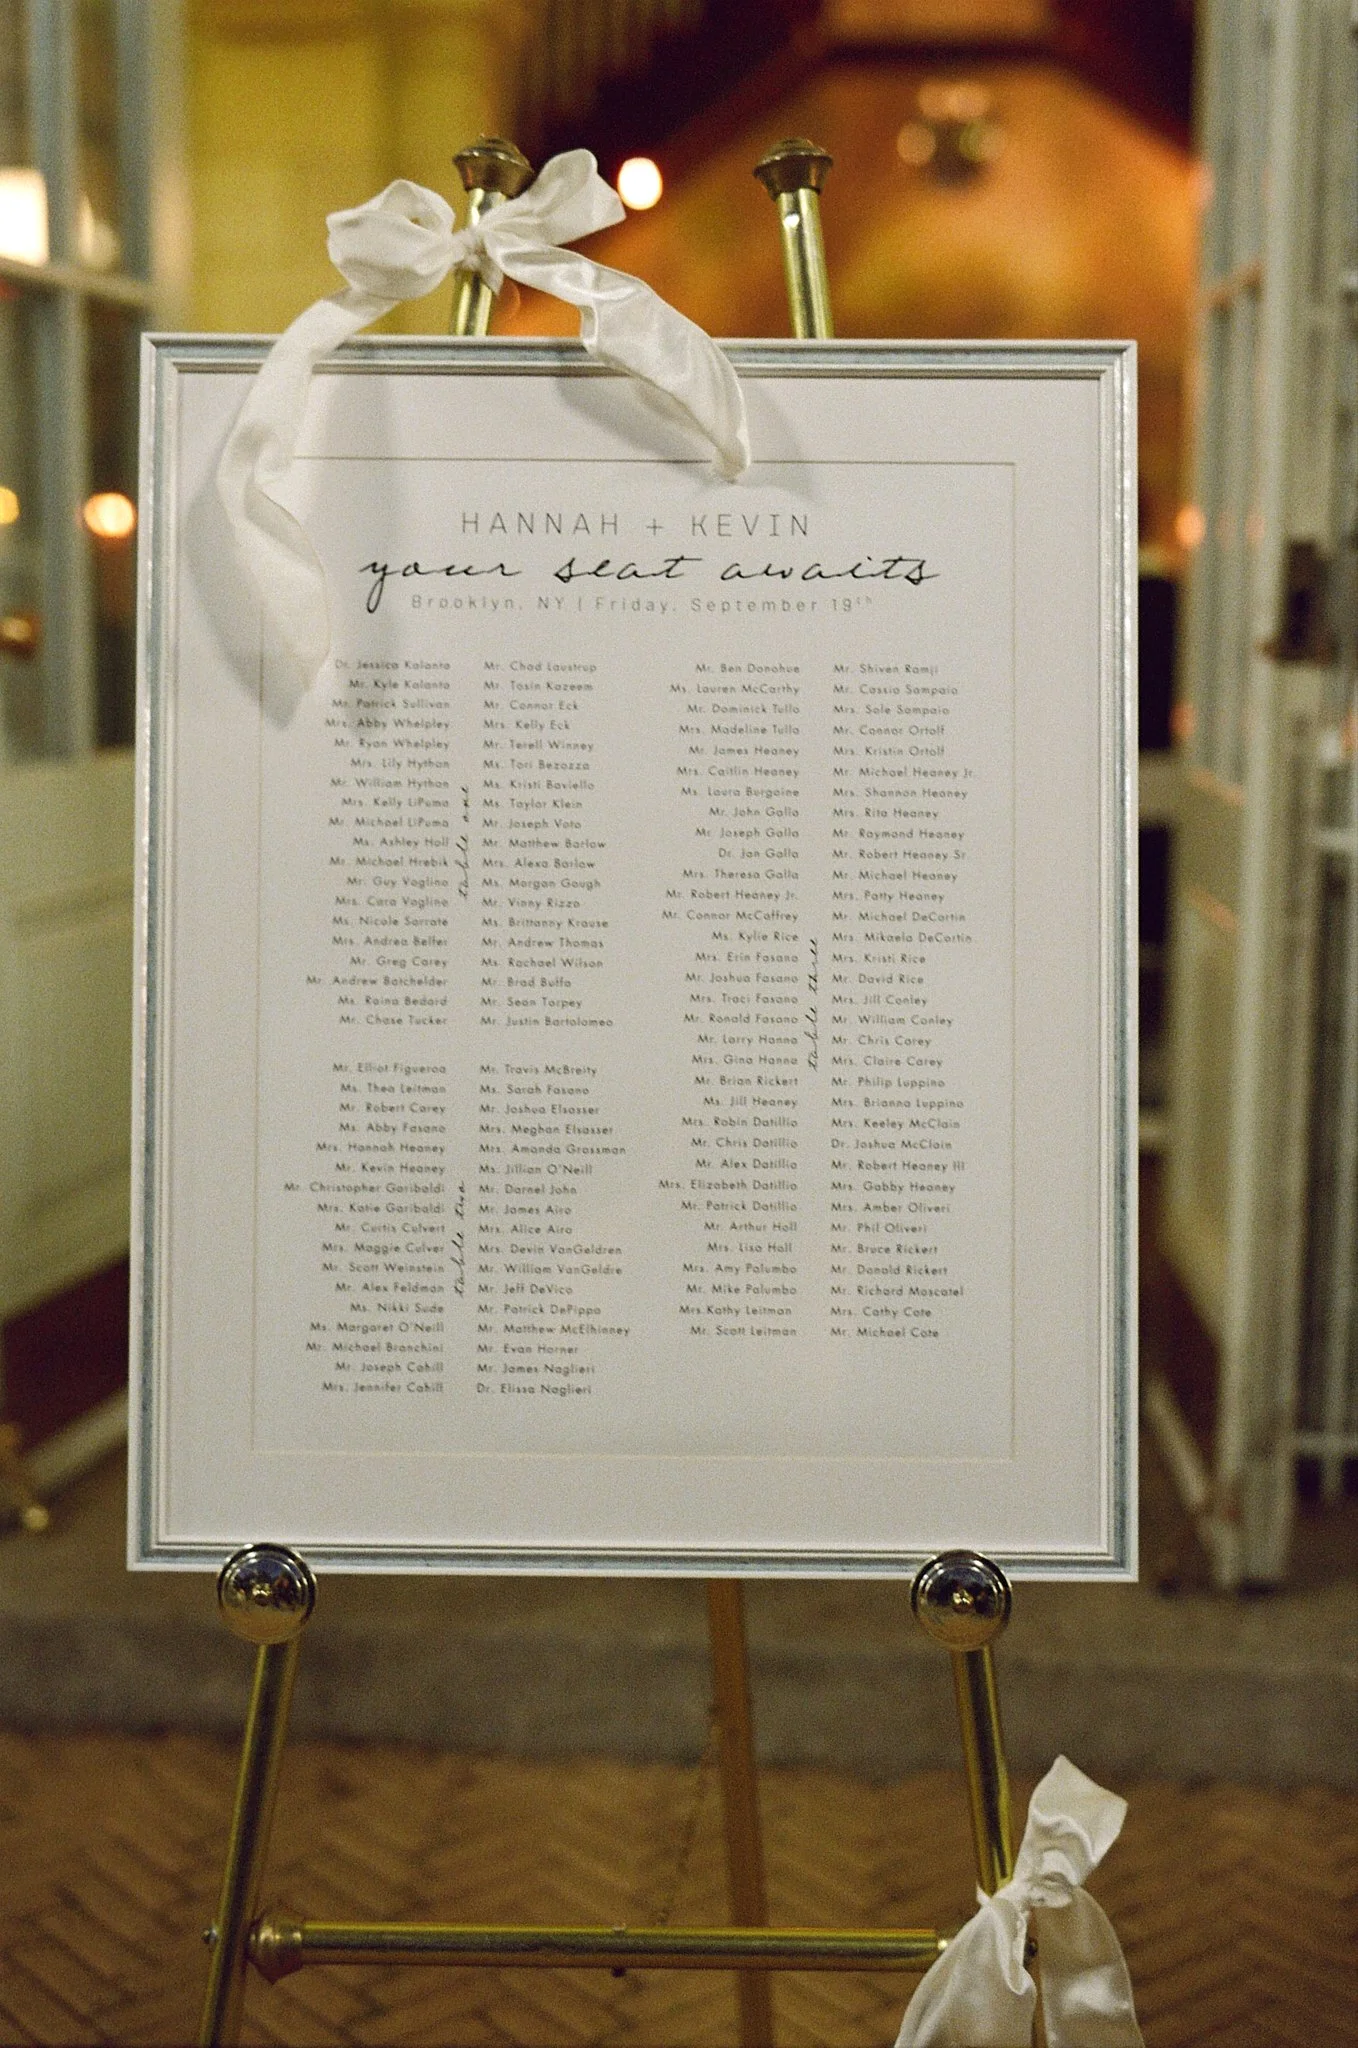 HANNAH + KEVIN
your seat awaits
Brooklyn, NY | Friday, September 19th
table one
Dr. Jessica Kalanta
Mr. Kyle Kalanta
Mr. Patrick Sullivan
Mrs. Abby Whelpley
Mr. Ryan Whelpley
Mrs. Lily Hython
Mr. William Hython
Mrs. Kelly LiPuma
Mr. Michael LiPuma
Ms. Ashley Holl
Mr. Michael Hrebik
Mr. Guy Voglino
Mrs. Cara Voglino
Ms. Nicole Sarrate
Mrs. Andrea Belfer
Mr. Greg Carey
Mr. Andrew Batchelder
Ms. Raina Bedard
Mr. Chase Tucker
Mr. Chad Laustrup
Mr. Tosin Kazeem
Mr. Connor Eck
Mrs. Kelly Eck
Mr. Terell Winney
Ms. Tori Bezozza
Ms. Kristi Baviello
Ms. Taylor Klein
Mr. Joseph Voto
Mr. Matthew Barlow
Mrs. Alexa Barlow
Ms. Morgan Gough
Mr. Vinny Rizzo
Ms. Brittanny Krause
Mr. Andrew Thomas
Ms. Rachael Wilson
Mr. Brad Buffa
Mr. Sean Torpey
Mr. Justin Bartolomeo
table two
Mr. Elliot Figueroa
Ms. Thea Leitman
Mr. Robert Carey
Ms. Abby Fasano
Mrs. Hannah Heaney
Mr. Kevin Heaney
Mr. Christopher Garibaldi
Mrs. Katie Garibaldi
Mr. Curtis Culvert
Mrs. Maggie Culver
Mr. Scott Weinstein
Mr. Alex Feldman
Ms. Nikki Sude
Ms. Margaret O'Neill
Mr. Michael Branchini
Mr. Joseph Cahill
Mrs. Jennifer Cahill
Mr. Travis McBreity
Ms. Sarah Fasano
Mr. Joshua Elsasser
Mrs. Meghan Elsasser
Mrs. Amanda Grossman
Ms. Jillian O'Neill
Mr. Darnel John
Mr. James Airo
Mrs. Alice Airo
Mrs. Devin VanGeldren
Mr. William VanGeldre
Mr. Jeff DeVico
Mr. Patrick DePippo
Mr. Matthew McElhinney
Mr. Evan Horner
Mr. James Naglieri
Dr. Elissa Naglieri
table three
Mr. Ben Donohue
Ms. Lauren McCarthy
Mr. Dominick Tullo
Mrs. Madeline Tullo
Mr. James Heaney
Mrs. Caitlin Heaney
Ms. Laura Burgoine
Mr. John Gallo
Mr. Joseph Gallo
Dr. Jan Gallo
Mrs. Theresa Gallo
Mr. Robert Heaney Jr.
Mr. Connor McCaffrey
Ms. Kylie Rice
Mrs. Erin Fasano
Mr. Joshua Fasano
Mrs. Traci Fasano
Mr. Ronald Fasano
Mr. Larry Hanna
Mrs. Gina Hanna
Mr. Brian Rickert
Ms. Jill Heaney
Mrs. Robin Datillio
Mr. Chris Datillio
Mr. Alex Datillio
Mrs. Elizabeth Datillio
Mr. Patrick Datillio
Mr. Arthur Holl
Mrs. Lisa Holl
Mrs. Amy Palumbo
Mr. Mike Palumbo
Mrs.Kathy Leitman
Mr. Scott Leitman
Mr. Shiven Ramji
Mr. Cassio Sampaio
Mrs. Sole Sampaio
Mr. Connor Ortolf
Mrs. Kristin Ortolf
Mr. Michael Heaney Jr.
Mrs. Shannon Heaney
Mrs. Rita Heaney
Mr. Raymond Heaney
Mr. Robert Heaney Sr
Mr. Michael Heaney
Mrs. Patty Heaney
Mr. Michael DeCortin
Mrs. Mikaela DeCortin
Mrs. Kristi Rice
Mr. David Rice
Mrs. Jill Conley
Mr. William Conley
Mr. Chris Carey
Mrs. Claire Carey
Mr. Philip Luppino
Mrs. Brianna Luppino
Mrs. Keeley McClain
Dr. Joshua McClain
Mr. Robert Heaney III
Mrs. Gabby Heaney
Mrs. Amber Oliveri
Mr. Phil Oliveri
Mr. Bruce Rickert
Mr. Donald Rickert
Mr. Richard Moscatel
Mrs. Cathy Cote
Mr. Michael Cote